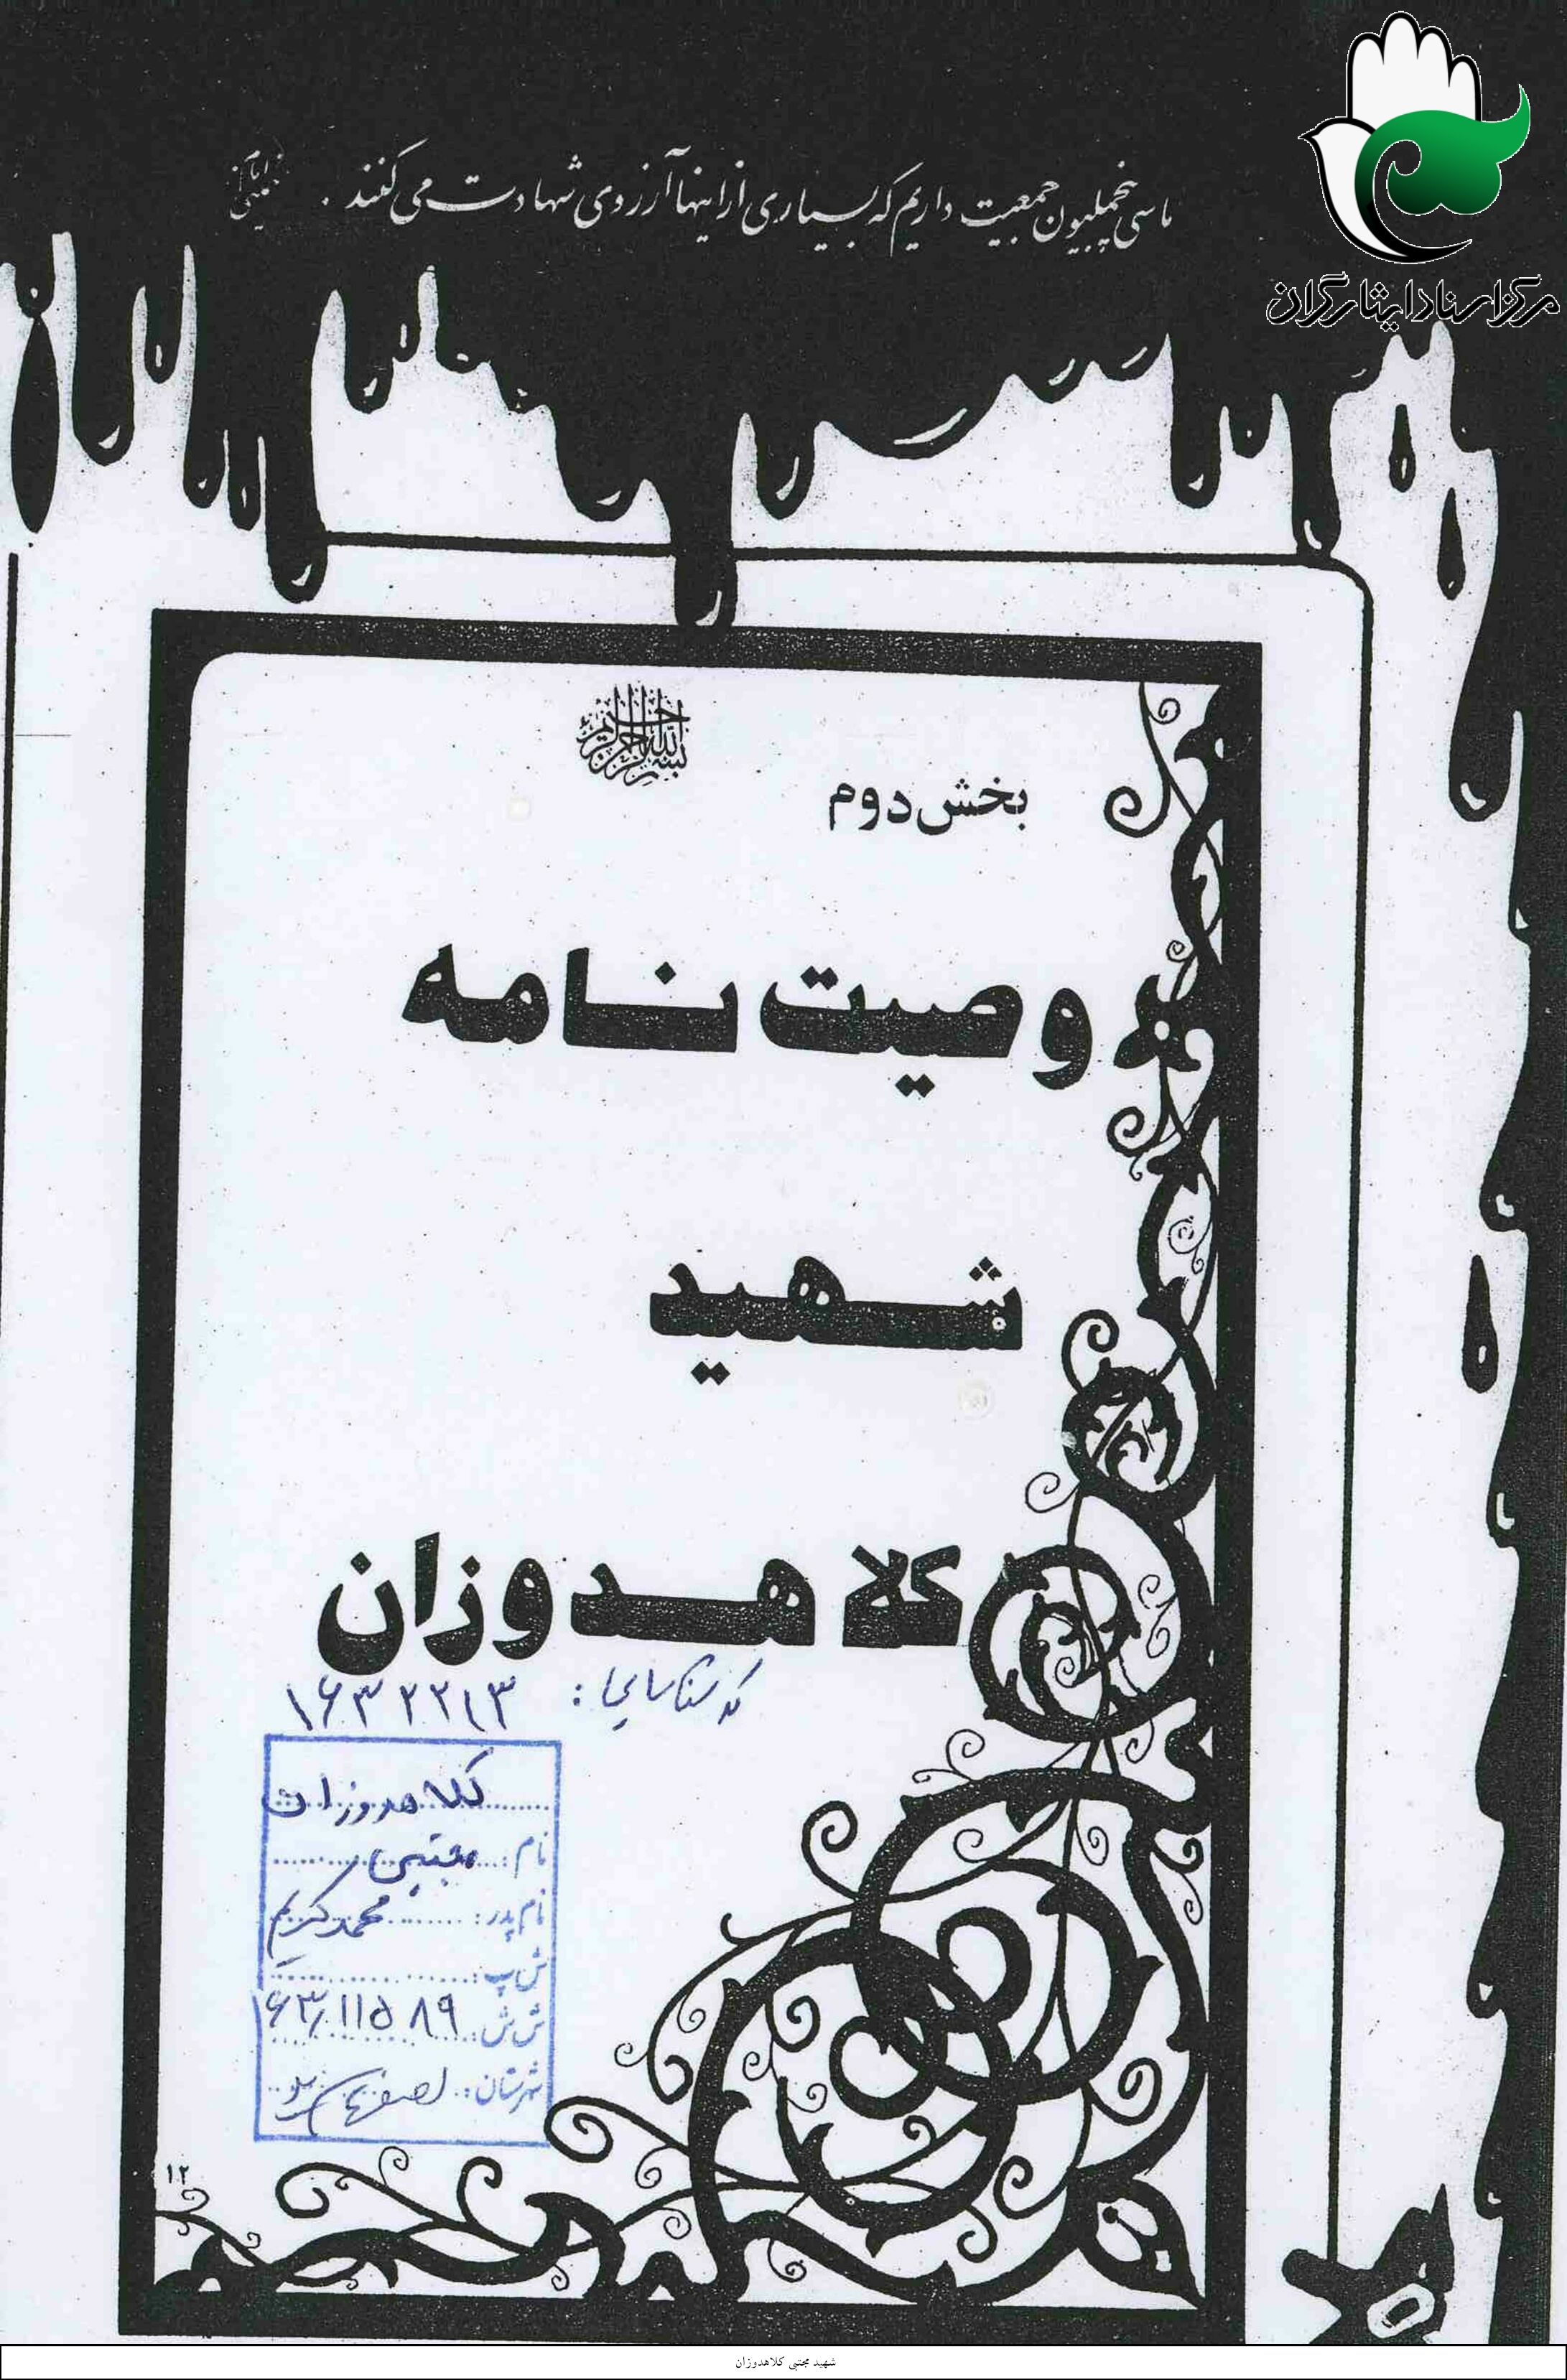 مرکز اسناد ایثارگران
ما سی پنج میلیون جمعیت داریم که بسیاری از اینها آرزوی شهادت می کنند .
امام خمینی
بسم الله الرحمن الرحیم
بخش دوم
وصیت نامه
شهید
کلاهدوزان
کد شناسایی : ۱۶۳۲۲۱۳
کلاهدوزان
نام : مجتبی
نام پدر : محمد کریم
ش پ :
ش ش : ۱۶۳/۱۱۵۸۹
شهرستان :
۱۲
شهید مجتبی کلاهدوزان